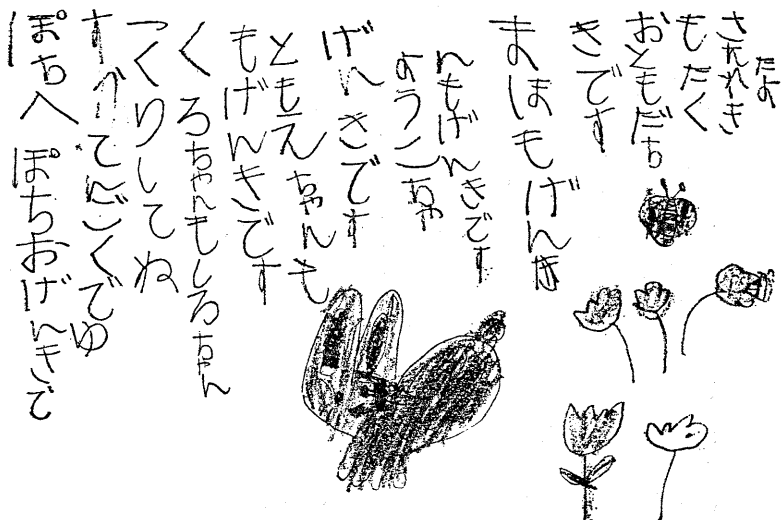 ぽちへ ぽちおげんきで
すか てんごくでゆ
っくりしてね
くろちゃんもしろちゃん
もげんきです
ともえちゃんも
げんきです
ようこちゃ
んもげんきです
まほもげんき
きです
おともだち
もたく
さんれき
たよ